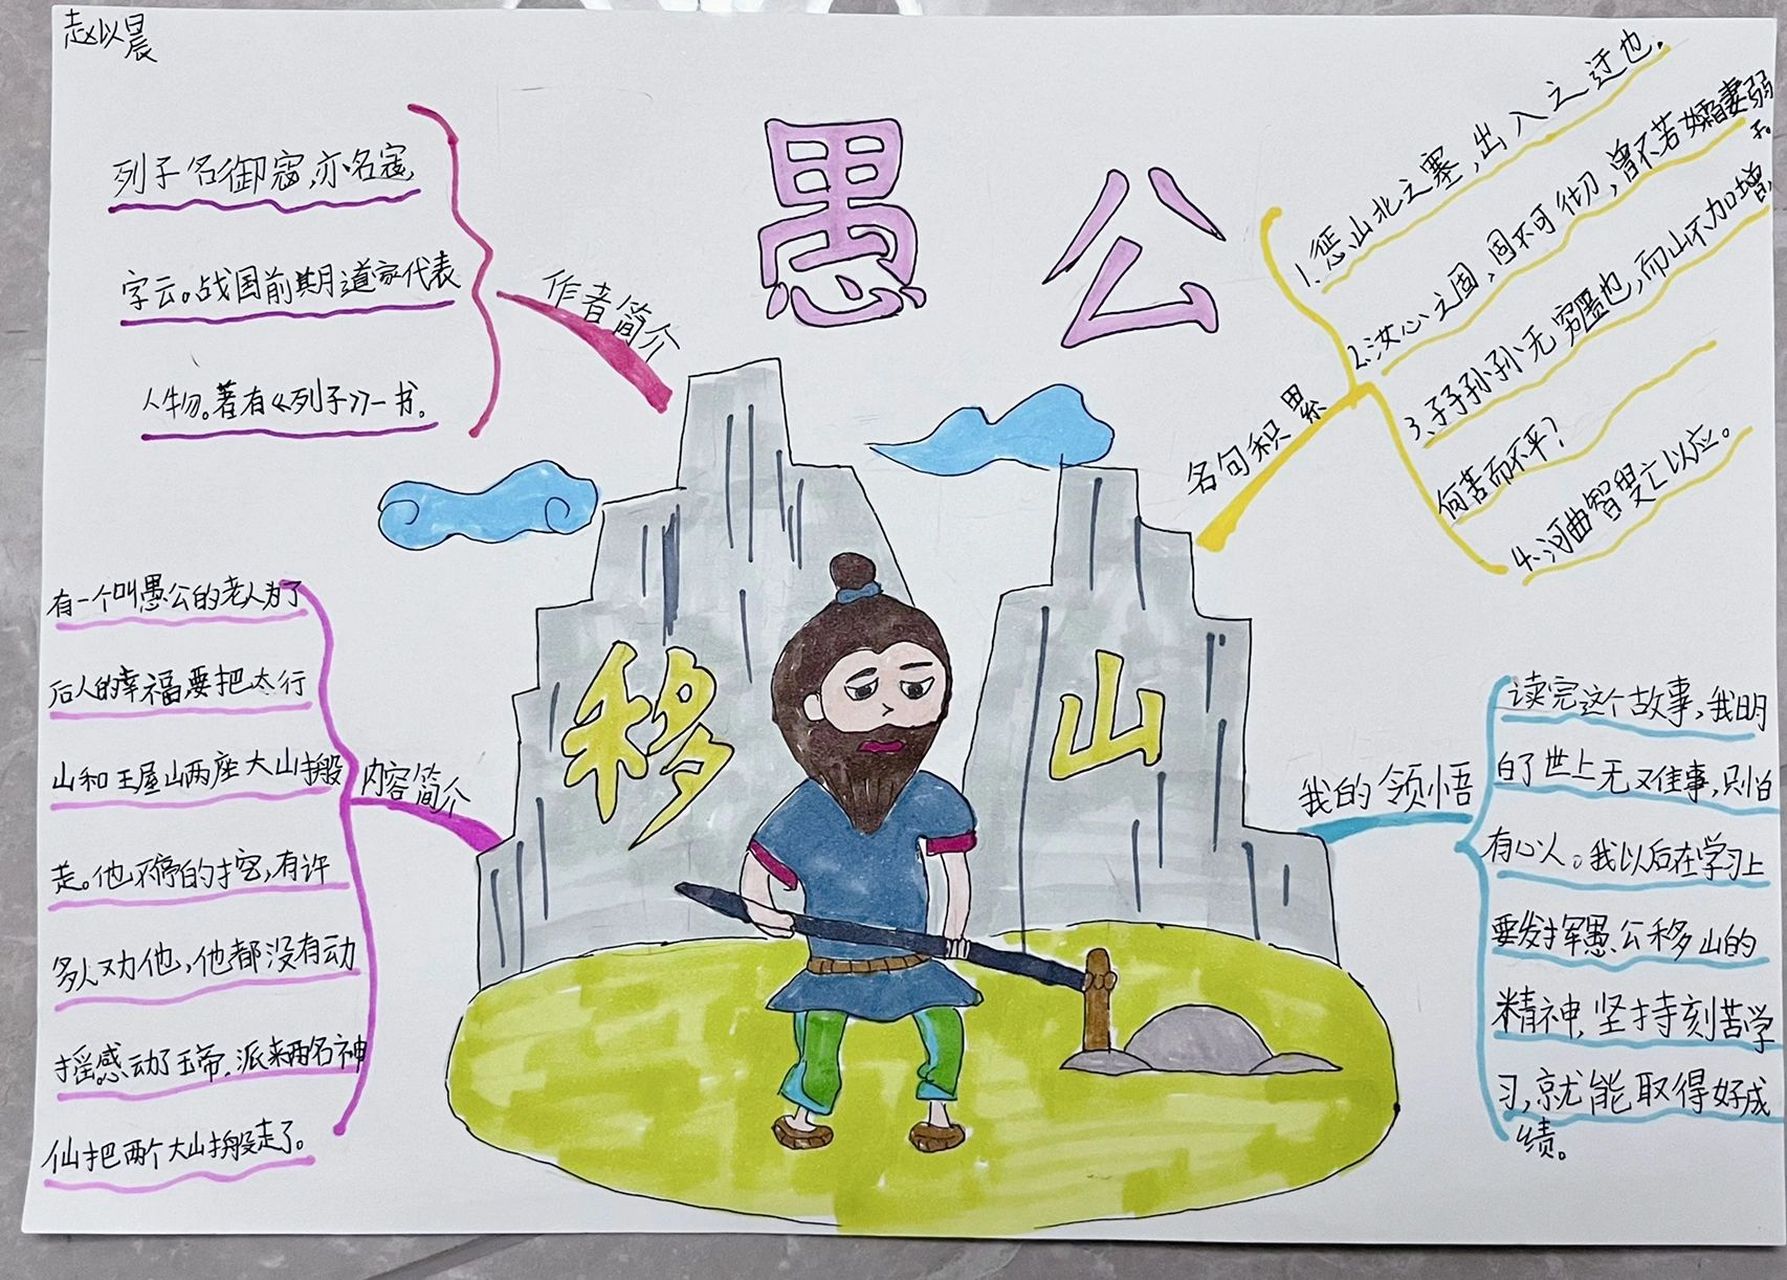 赵以晨
愚公
移山
作者简介
列子名御寇,亦名寇,
字云。战国前期道家代表
人物。著有《列子》一书。
名句积累
1.惩山北之塞,出入之迂也.
2.汝心之固,固不可彻,曾不若孀妻弱
子。
3.子子孙孙无穷匮也,而山不加增,
何苦而不平?
4.河曲智叟亡以应。
内容简介
有一个叫愚公的老人为了
后人的幸福,要把太行
山和王屋山两座大山搬
走。他不停的挖,有许
多人劝他,他都没有动
摇。感动了玉帝,派来两名神
仙把两个大山搬走了。
我的领悟
读完这个故事,我明
白了世上无难事,只怕
有心人。我以后在学习上
要发挥愚公移山的
精神,坚持刻苦学
习,就能取得好成
绩。